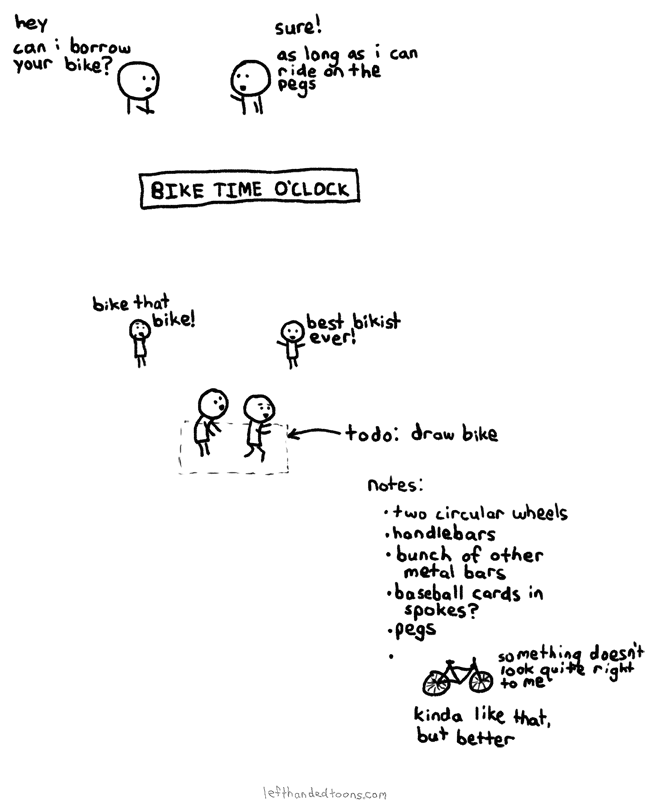 hey
can i borrow
your bike?
sure!
as long as i can
ride on the
pegs
BIKE TIME O'CLOCK
bike that
bike!
best bikist
ever!
todo: draw bike
notes:
• two circular wheels
• handlebars
• bunch of other
metal bars
• baseball cards in
spokes?
• pegs
•
something doesn't
look quite right
to me
kinda like that,
but better
lefthandedtoons.com